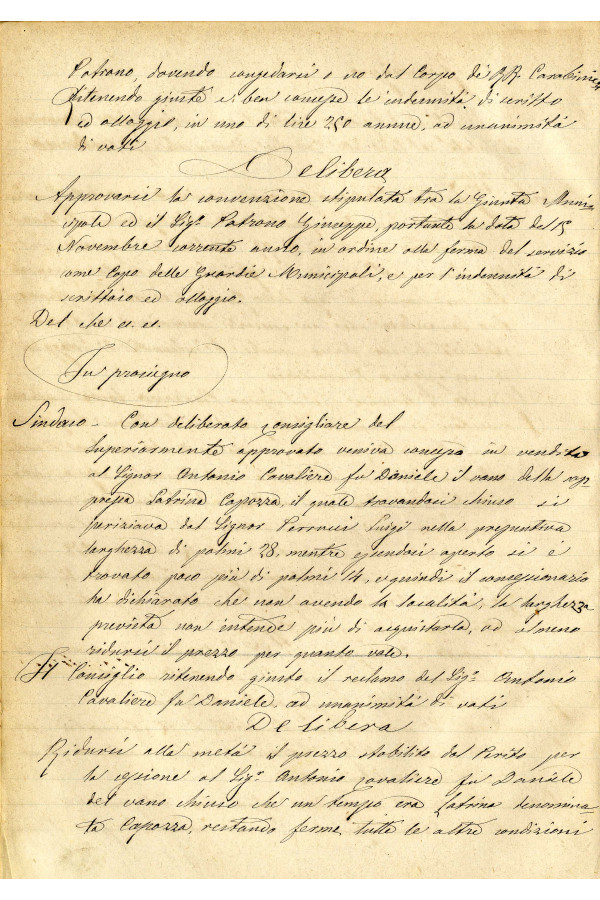 Patrono, dovendo congedarsi o no dal Corpo dei RR. Carabinieri
Ritenendo giuste e ben concepe le indennità di scritto
ed alloggio, in uno di lire 250 annue, ad unanimità
di voti
Delibera
Approvarsi la convenzione stipulata tra la Giunta Muni-
cipale ed il Sigr. Patrono Giuseppe, portante la data del 15
Novembre corrente anno, in ordine alla ferma del servizio
come Capo delle Guardie Municipali, e per l'indennità di
scrittoio ed alloggio.
Del che et. et.
In prosieguo
Sindaco - Con deliberato consigliare del
superiormente approvato veniva concessa in vendita
al Signor Antonio Cavaliere fu Daniele il vano della
latrina Capozza, il quale trovandosi chiuso si
periziava dal Signor Perrucci Luigi nella presuntiva
larghezza di palmi 28, mentre essendosi aperto si è
trovato poco più di palmi 14, e quindi il concessionario
ha dichiarato che non avendo la località, la larghezza
prevista non intende più di acquistarla, od almeno
ridursi il prezzo per quanto vale.
Il Consiglio ritenendo giusto il reclamo del Sigr. Antonio
Cavaliere fu Daniele ad unanimità di voti
Delibera
Ridursi alla metà il prezzo stabilito dal Perito per
la cessione al Sigr. Antonio Cavaliere fu Daniele
del vano chiuso che un tempo era Latrina denomina-
ta Capozza, restando ferme tutte le altre condizioni